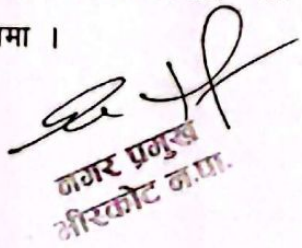 मा ।
नगर प्रमुख
भीरकोट न.पा.